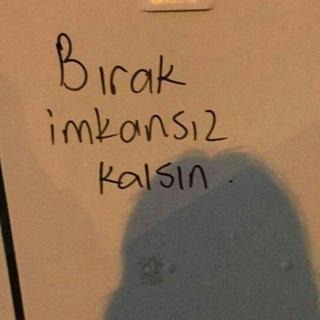 Bırak
imkansız
kalsın.